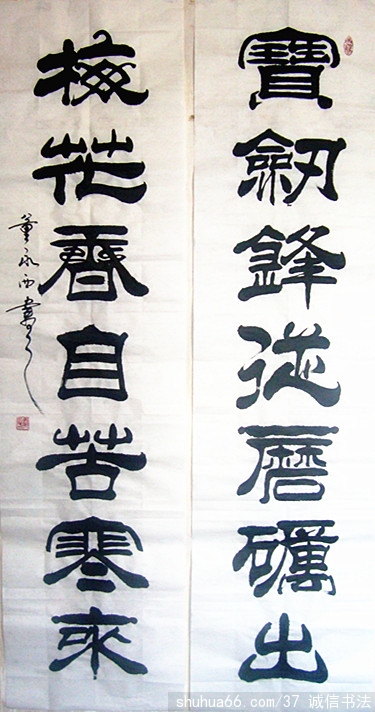 寶劔鋒從磨礪出
梅花香自苦寒來
董永西書
shuhua66.com/37 诚信书法